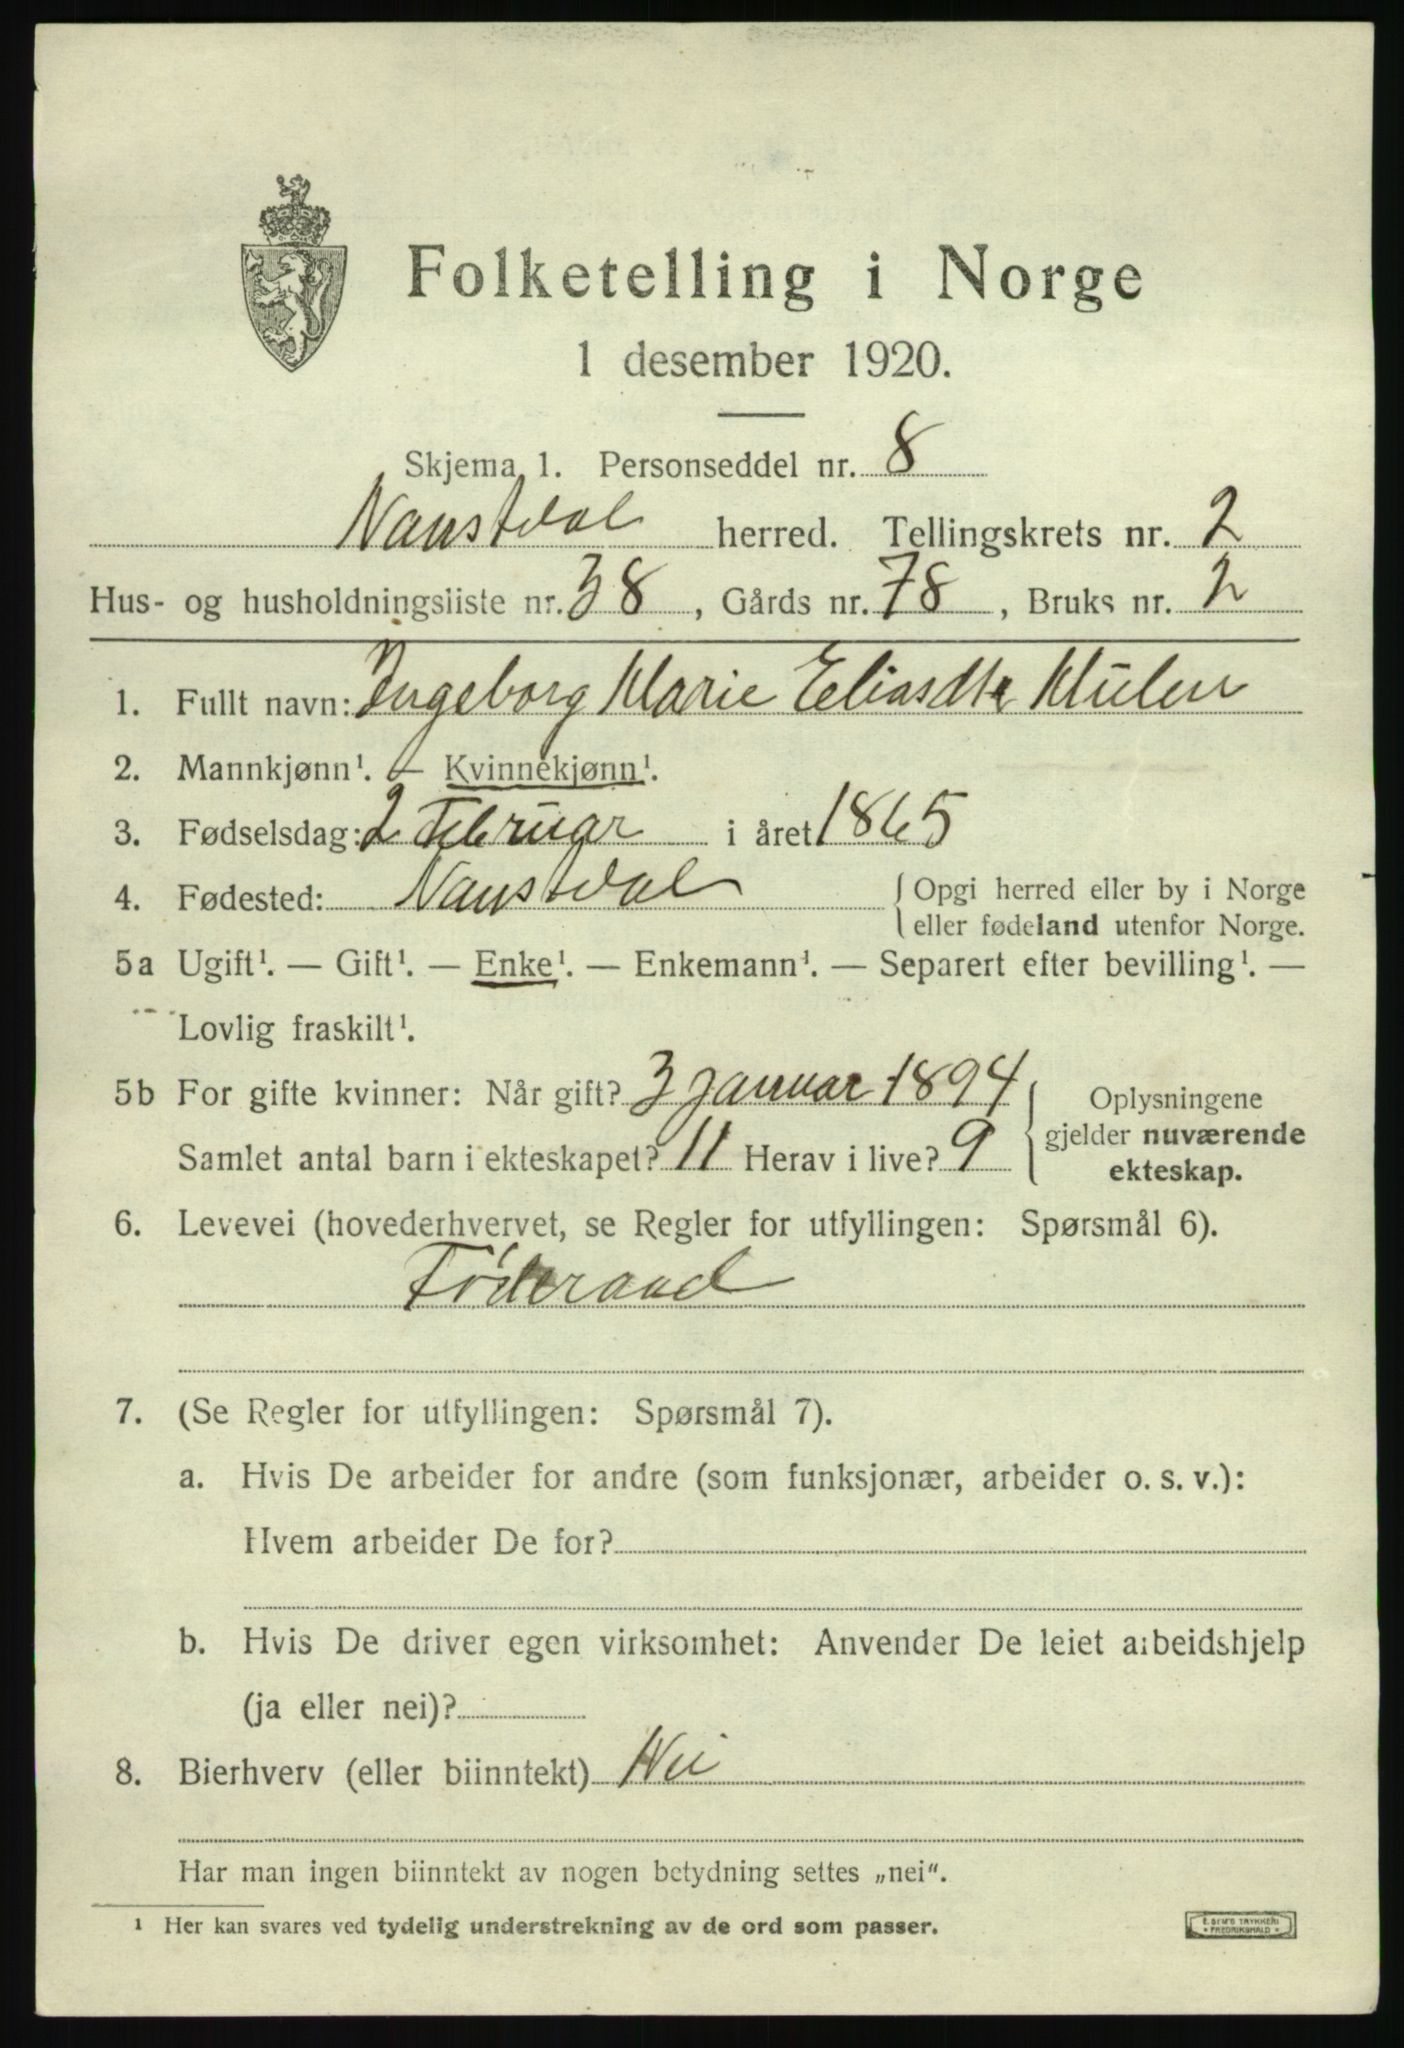 Folketelling i Norge
1 desember 1920.
Skjema 1. Personseddel nr. 8
Naustdal herred. Tellingskrets nr. 2
Hus- og husholdningsliste nr. 38, Gårds nr. 78, Bruks nr. 2
1. Fullt navn: Ingeborg Marie Eliasdtr Kulen
2. Mannkjønn¹. — Kvinnekjønn¹.
3. Fødselsdag: 2 Februar i året 1865
4. Fødested: Naustdal { Opgi herred eller by i Norge
eller fødeland utenfor Norge.
5a Ugift¹. — Gift¹. — Enke¹. — Enkemann¹. — Separert efter bevilling¹. —
Lovlig fraskilt¹.
5b For gifte kvinner: Når gift? 3 januar 1894
Samlet antal barn i ekteskapet? 11 Herav i live? 9
Oplysningene
gjelder nuværende
ekteskap.
6. Levevei (hovederhvervet, se Regler for utfyllingen: Spørsmål 6).
Føderaad
7. (Se Regler for utfyllingen: Spørsmål 7).
a. Hvis De arbeider for andre (som funksjonær, arbeider o. s. v.):
Hvem arbeider De for?
b. Hvis De driver egen virksomhet: Anvender De leiet arbeidshjelp
(ja eller nei)?
8. Bierhverv (eller biinntekt) Nei
Har man ingen biinntekt av nogen betydning settes „nei“.
¹ Her kan svares ved tydelig understrekning av de ord som passer.
E. SEM'S TRYKKERI
• FREDRIKSHALD •